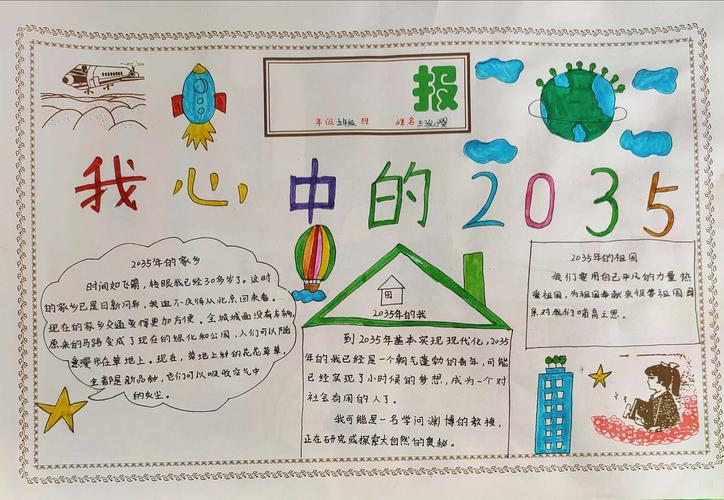 报
年级 五年级 班 姓名
我心中的2035
2035年的家乡
时间如飞箭,转眼我已经30多岁了。这时
的家乡已是日新月异,我
现在的家乡交通变得更加方便。全城城面没有车辆,
原来的马路变成了现在的绿化和公园,人们可以随
意漫步在草地上。现在,草地上种的花花草草,
全都是新品种,它们可以吸收空气中
的灰尘。
2035年的我
到2035年基本实现现代化,2035
年的我已经是一个朝气蓬勃的青年,可能
已经实现了小时候的梦想,成为一个对
社会有用的人了。
我可能是一名学问渊博的教授,
正在研究或探索大自然的奥秘。
2035年的祖国
我们要用自己平凡的力量热
爱祖国,为祖国奉献来报答祖国母
亲对我们哺育之恩。